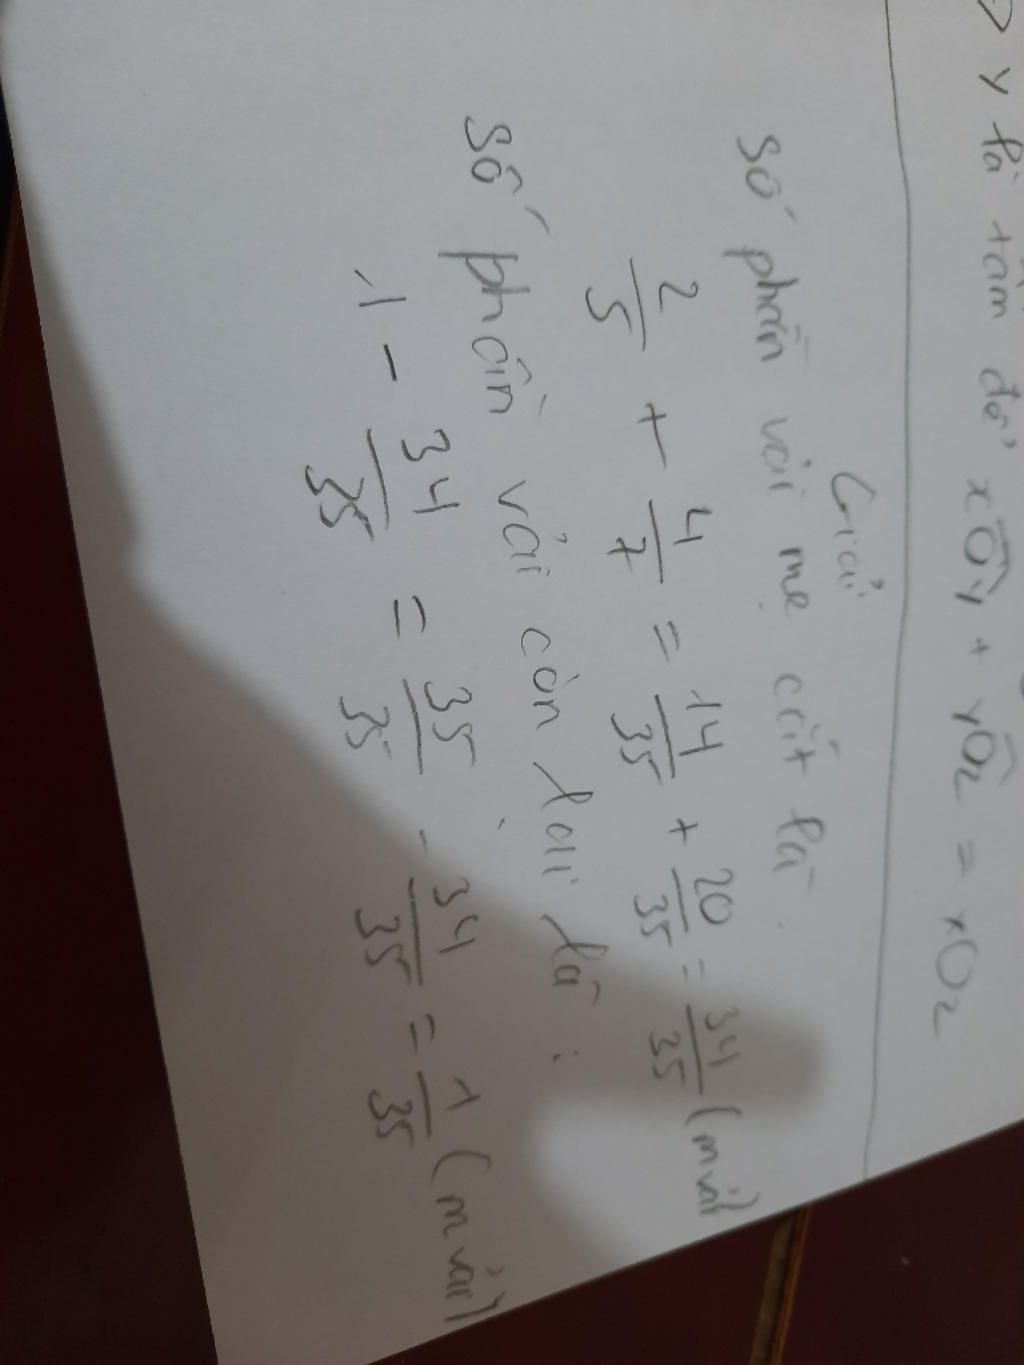 y là tâm để xÔy + yÔz = xOz
Giải
số phần vải mẹ cắt là:
2/5 + 4/7 = 14/35 + 20/35 = 34/35 (m vải)
số phần vải còn lại là:
1 - 34/35 = 35/35 - 34/35 = 1/35 (m vải)